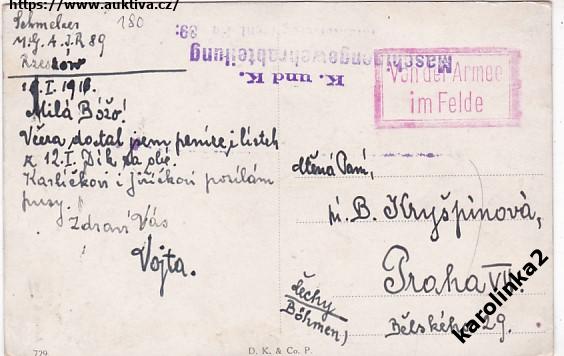 https://www.auktiva.cz/
Schmelzer 180
M.G.A.J.R 89
Rzeszow
I. 1918.
Milá Božo!
Včera dostal jsem peníze, i lístek
z 12.I. Dík za vše.
Karlíčkovi i Jiříčkovi posílám
pusy.
Zdraví Vás
Vojta.
K. und K.
Maschinengewehrabteilung
39:
Von der Armee
im Felde
Ctěná Paní,
B. Kryšpínová,
Praha VII.
Bělského 29.
Čechy
Böhmen)
729
D. K. & Co. P.
karolinka2